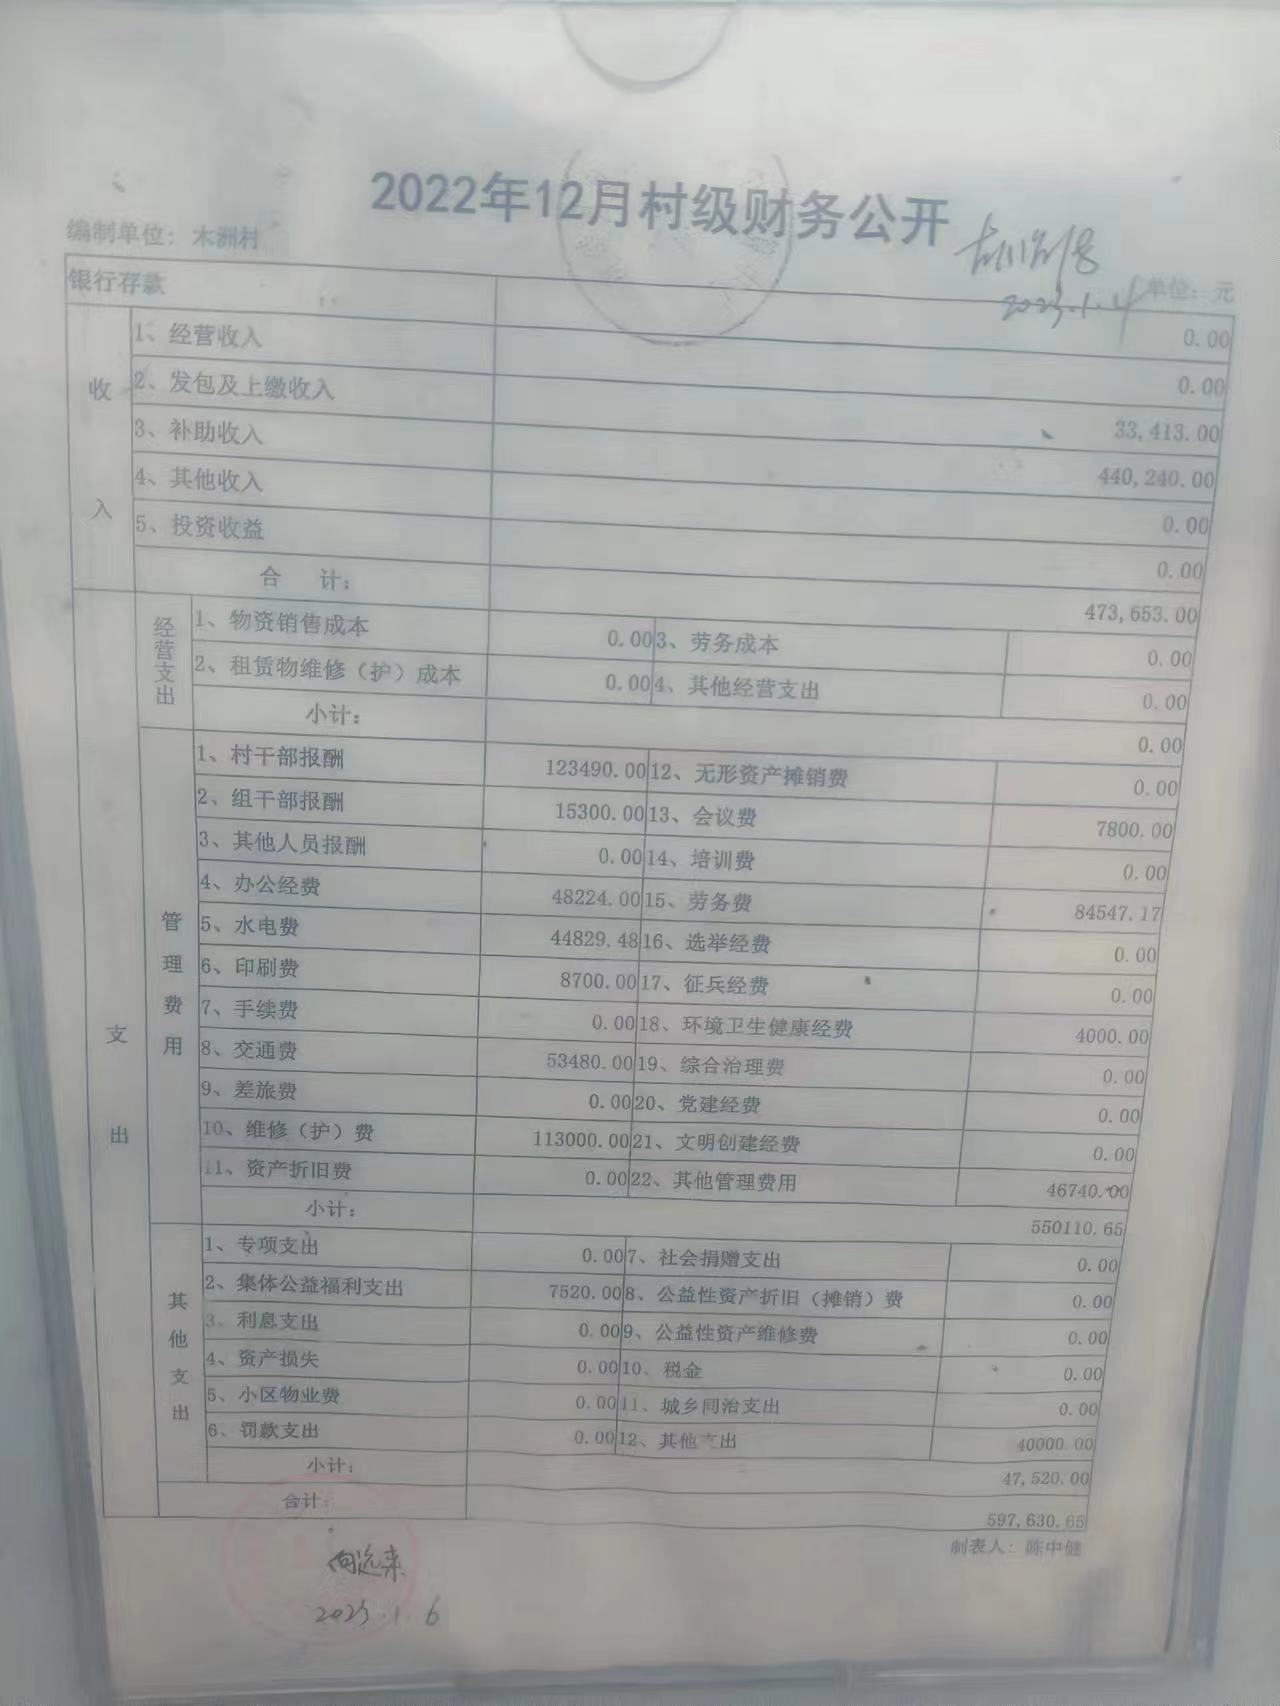 2022年12月村级财务公开
编制单位：木洲村
2023.1.4
单位：元
银行存款 0.00
收入
1、经营收入 0.00
2、发包及上缴收入 33,413.00
3、补助收入 440,240.00
4、其他收入 0.00
5、投资收益 0.00
合 计： 473,653.00
支出
经营支出
1、物资销售成本 0.00 3、劳务成本 0.00
2、租赁物维修（护）成本 0.00 4、其他经营支出 0.00
小计： 0.00
管理费用
1、村干部报酬 123490.00 12、无形资产摊销费 0.00
2、组干部报酬 15300.00 13、会议费 7800.00
3、其他人员报酬 0.00 14、培训费 0.00
4、办公经费 48224.00 15、劳务费 84547.17
5、水电费 44829.48 16、选举经费 0.00
6、印刷费 8700.00 17、征兵经费 0.00
7、手续费 0.00 18、环境卫生健康经费 4000.00
8、交通费 53480.00 19、综合治理费 0.00
9、差旅费 0.00 20、党建经费 0.00
10、维修（护）费 113000.00 21、文明创建经费 0.00
11、资产折旧费 0.00 22、其他管理费用 46740.00
小计： 550110.65
其他支出
1、专项支出 0.00 7、社会捐赠支出 0.00
2、集体公益福利支出 7520.00 8、公益性资产折旧（摊销）费 0.00
3、利息支出 0.00 9、公益性资产维修费 0.00
4、资产损失 0.00 10、税金 0.00
5、小区物业费 0.00 11、城乡同治支出 0.00
6、罚款支出 0.00 12、其他支出 40000.00
小计： 47,520.00
合计： 597,630.65
制表人：陈中健
向远来
2023.1.6